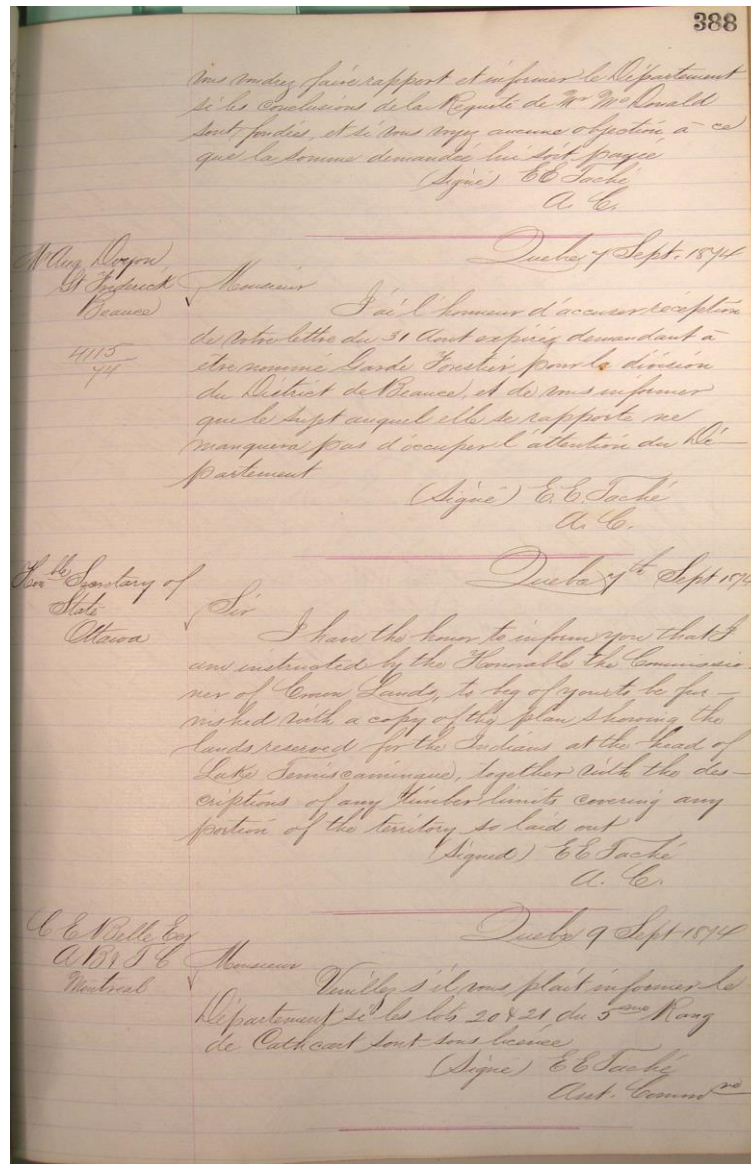 388
vous voudrez faire rapport et informer le Département
si les conclusions de la Requête de Mr McDonald
sont fondées, et si vous voyez aucune objection à ce
que la somme demandée lui soit payée
(Signé) E E Taché
A. C.
Quebec 7 Sept. 1874
Mr Aug Doyon
St Frederick
Beauce
4115
74
Monsieur
J'ai l'honneur d'accuser réception
de votre lettre du 31 Aout expiré, demandant à
être nommé Garde Forestier pour la division
du District de Beauce, et de vous informer
que le sujet auquel elle se rapporte ne
manquera pas d'occuper l'attention du Dé-
partement
(Signé) E. E. Taché
A. C.
Quebec 7th Sept 1874
Honble Secretary of
State
Ottawa
Sir
I have the honor to inform you that I
am instructed by the Honorable the Commissio-
ner of Crown Lands, to beg of you to be fur-
nished with a copy of the plan showing the
lands reserved for the Indians at the head of
Lake Temiscamingue, together with the des-
criptions of any timber limits covering any
portion of the territory so laid out
(Signed) E E Taché
A. C.
Quebec 9 Sept 1874
C E Belle Esq
Montreal
Monsieur
Veuillez s'il vous plait informer le
Département si les lots 20 & 21 du 5eme Rang
de Cathcart sont sous licence
(Signé) E E Taché